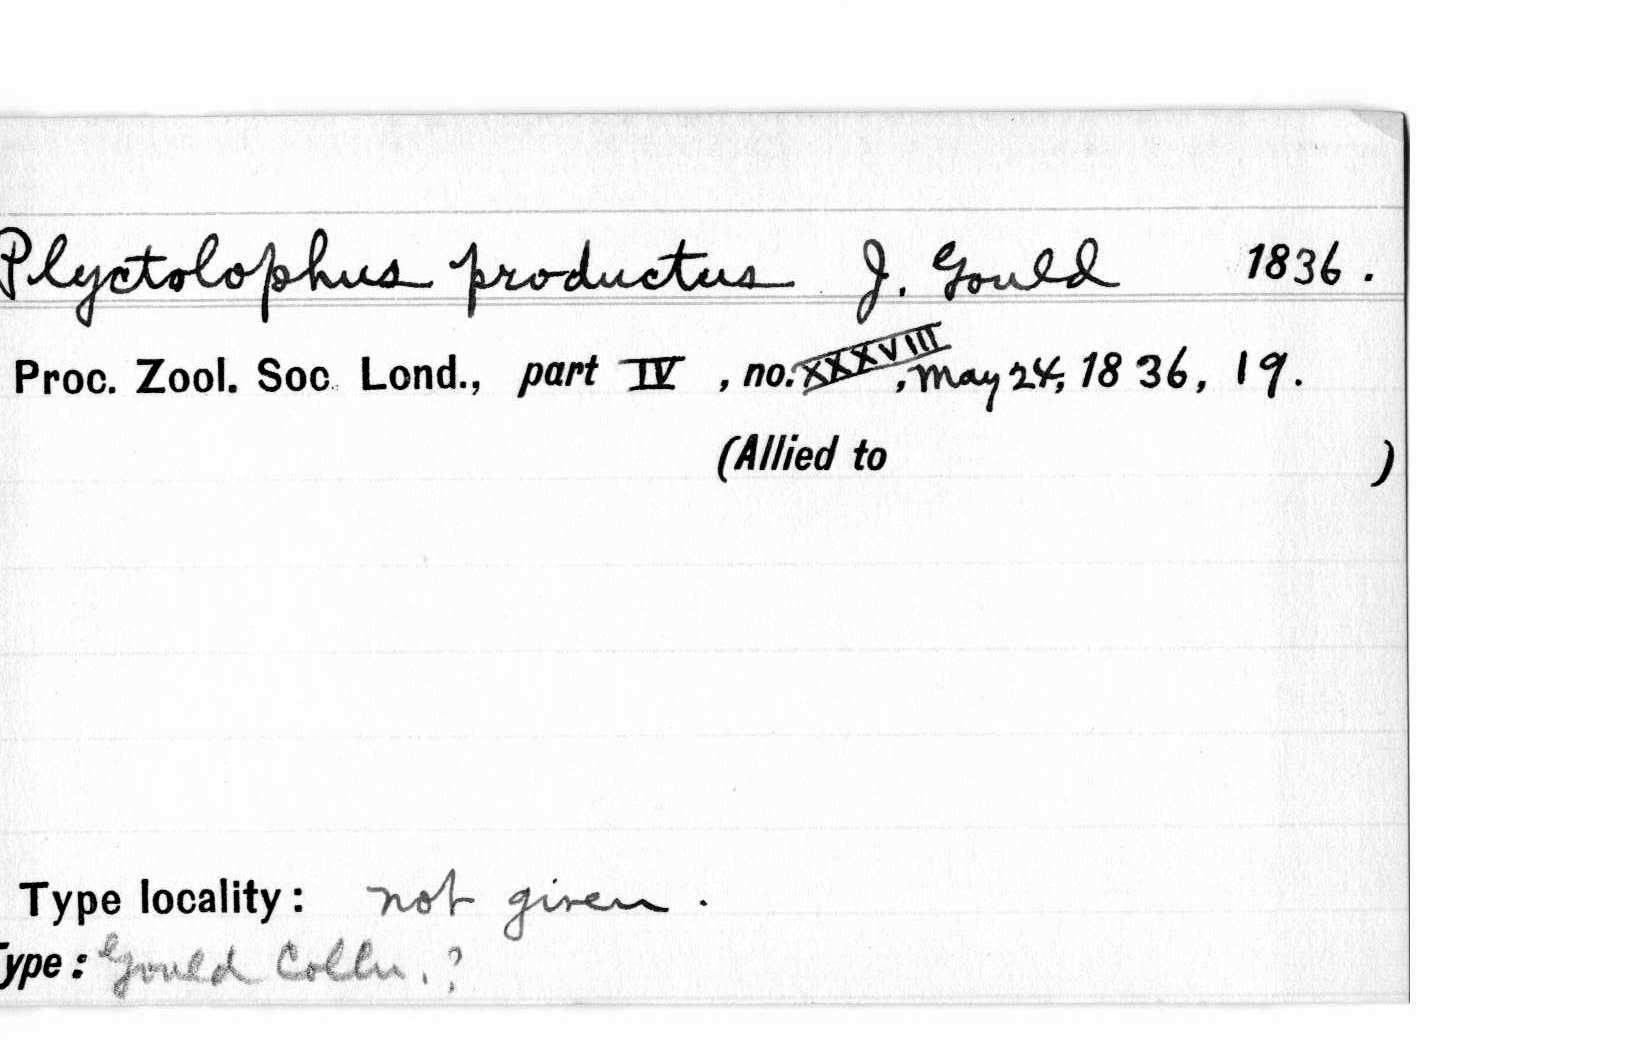 Plyctolophus productus J. Gould 1836.
Proc. Zool. Soc. Lond., part IV, no. XXXVIII, May 24, 1836, 19.
(Allied to )
Type locality: not given.
Type: Gould Colln. ?